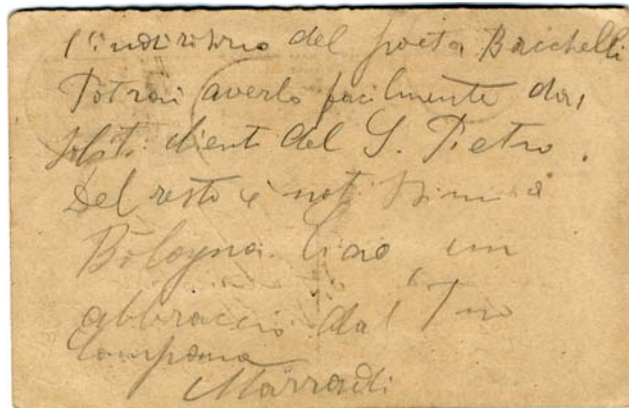 l'indirizzo del poeta Bacchelli
Potrai averlo facilmente dai
soliti clienti del S. Pietro.
Del resto è notissimo a
Bologna. Ciao un
abbraccio dal Tuo
Campana
Marradi